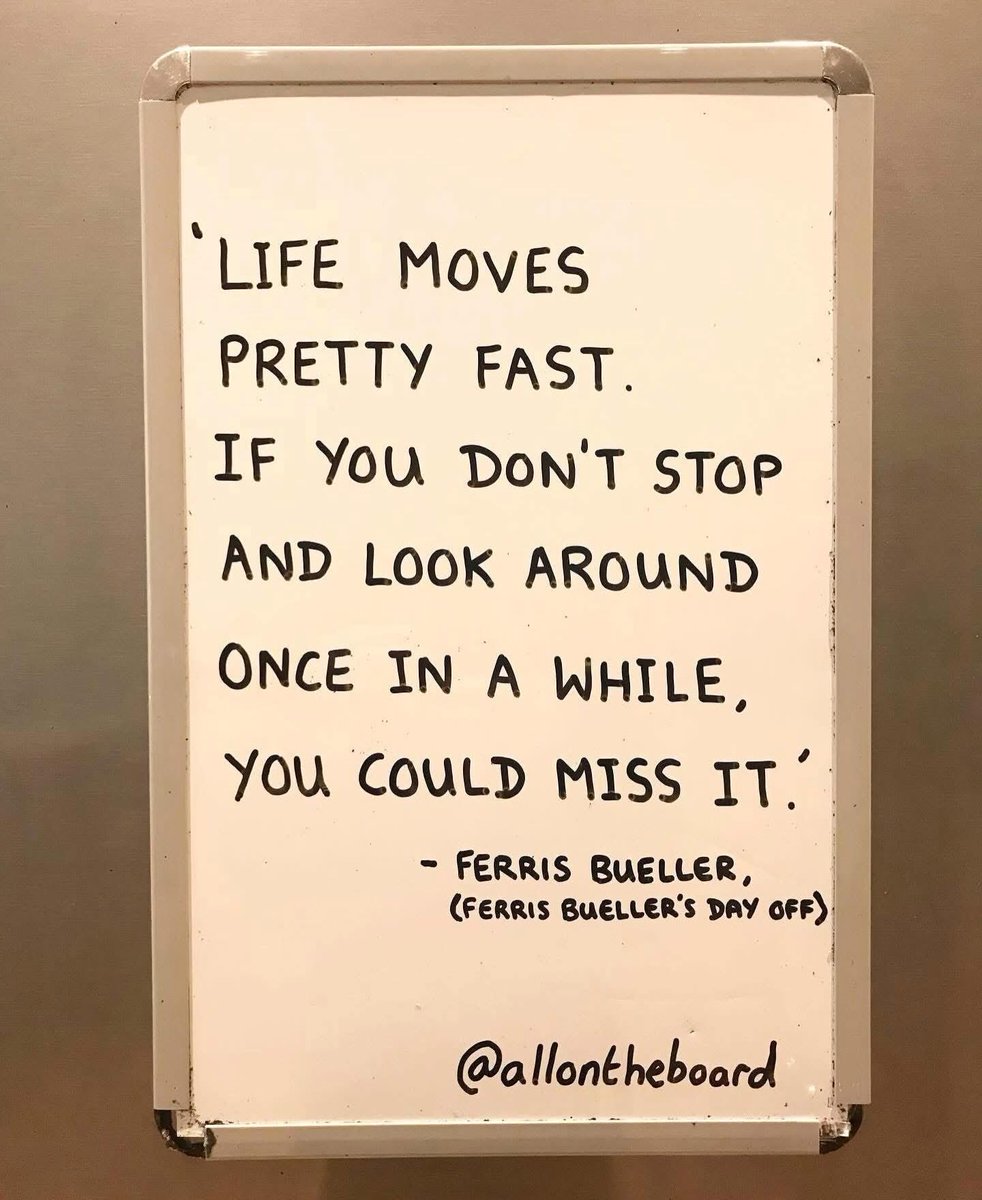 'LIFE MOVES
PRETTY FAST.
IF YOU DON'T STOP
AND LOOK AROUND
ONCE IN A WHILE,
YOU COULD MISS IT.'
- FERRIS BUELLER,
(FERRIS BUELLER'S DAY OFF)
@allontheboard